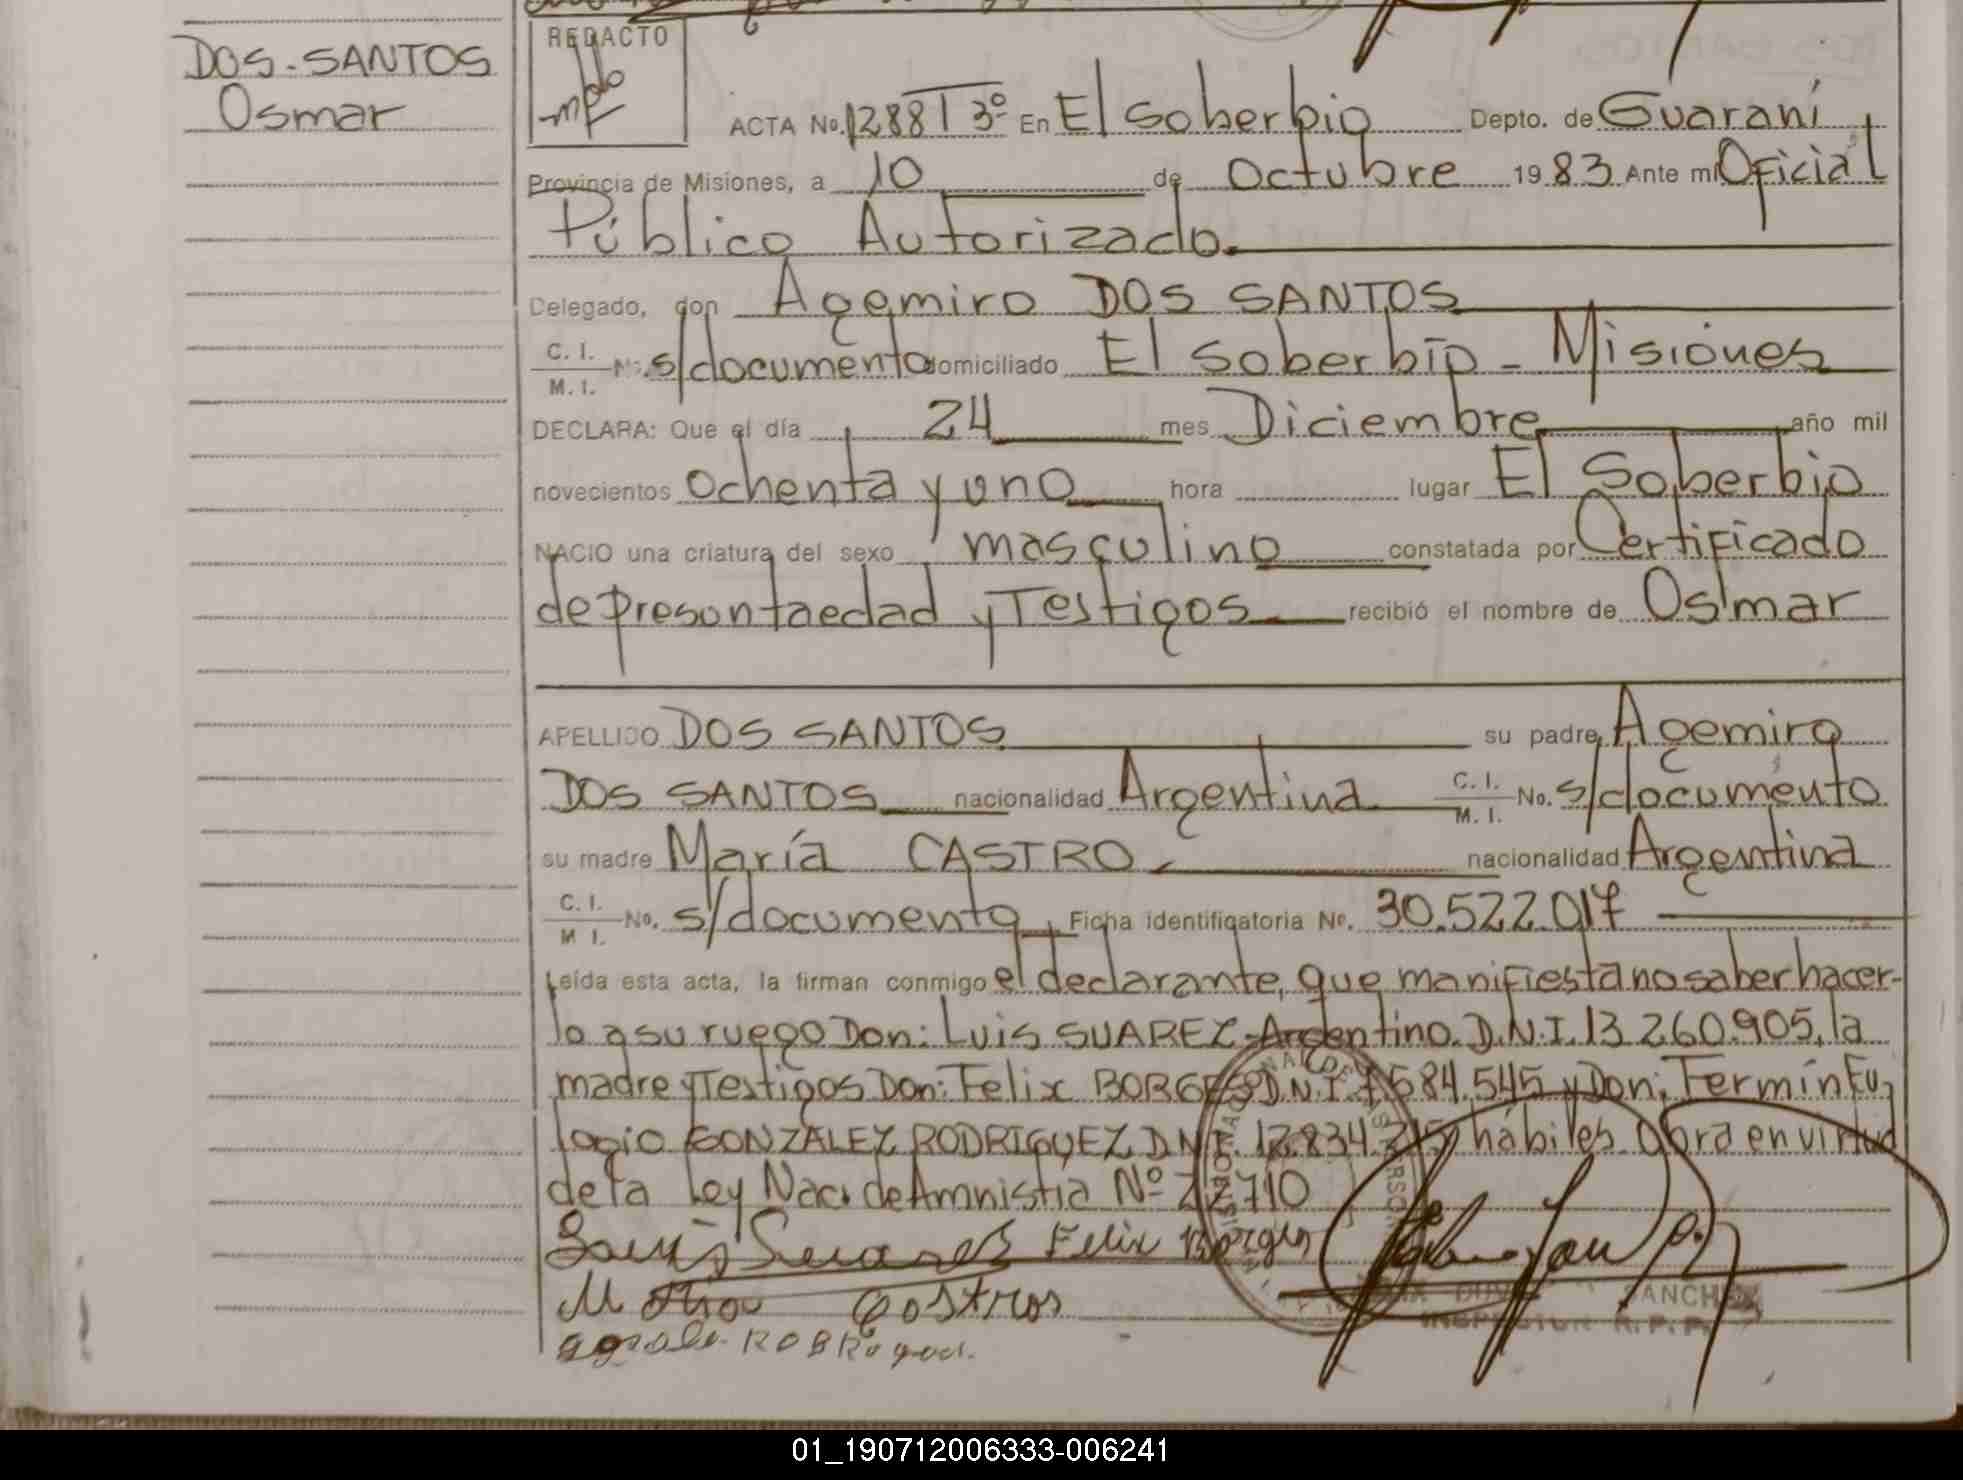 DOS-SANTOS
Osmar
REDACTO
ACTA No. 1288 T 3º En El Soberbio Depto. de Guaraní
Provincia de Misiones, a 10 de Octubre 1983 Ante mi Oficial
Público Autorizado.
Delegado, don Agemiro DOS SANTOS
C. I.
M. I. No. s/documento domiciliado El Soberbio - Misiones
DECLARA: Que el día 24 mes Diciembre año mil
novecientos ochenta y uno hora lugar El Soberbio
NACIO una criatura del sexo masculino constatada por Certificado
de presontaedad y Testigos recibió el nombre de Osmar
APELLIDO DOS SANTOS su padre Agemiro
DOS SANTOS nacionalidad Argentina C. I. M. I. No. s/documento
su madre María CASTRO nacionalidad Argentina
C. I. M I. No. s/documento, Ficha identificatoria No. 30.522.017
Leída esta acta, la firman conmigo el declarante, que manifiesta no saber hacer-
lo a su ruego Don: Luis SUAREZ-Argentino. D.N.I. 13 260.905, la
madre y Testigos Don: Felix BORGES D.N.I. 7.584.545 y Don: Fermín Eu
logio GONZALEZ RODRIGUEZ D.N.I. 12.834.215, hábiles. Obra en virtud
de la Ley Nac. de Amnistia Nº 22.710
Luis Suares Felix Borges
Maria Castros
SANCHEZ
INSPECTOR R. P. P.
01_190712006333-006241